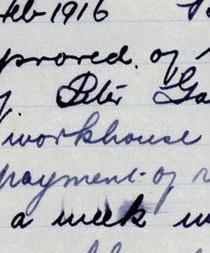 Feb 1916
proved. of
Peter Ga
workhouse
payment of
a week